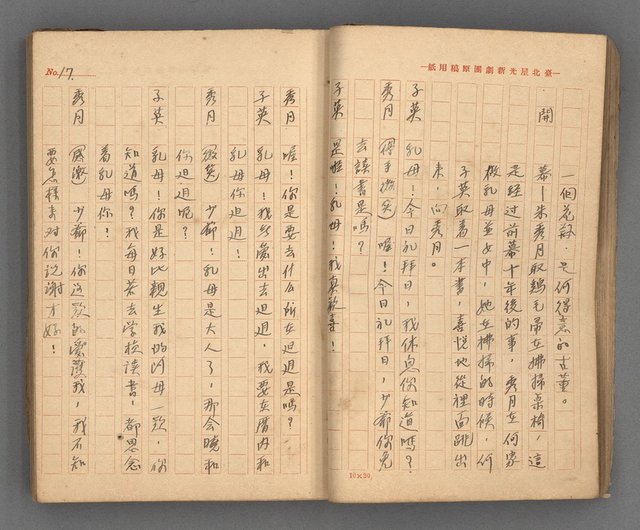 臺北星光新劇團原稿用紙
一個花瓶，是何得意的古董。
開
幕—朱秀月取鷄毛帚在拂掃桌椅，這
是經过前幕十年後的事，秀月在何家
做乳母並女中，她在拂掃的時候，何
子英取着一本書，喜悦地從裡面跳出
来，向秀月。
子英　乳母！今日礼拜日，我休息你知道嗎？
秀月　（停手微笑）喔！今日礼拜日，少爺你免
去讀書是嗎？
子英　是啦！乳母！我真歡喜！
10×20
No. 17.
秀月　喔！你是要去什么所在𨑨迌是嗎？
子英　乳母！我無愛出去𨑨迌，我要在厝内和
乳母你𨑨迌！
秀月　（微笑）少爺！乳母是大人了，那会曉和
你𨑨迌呢？
子英　乳母！你是好比親生我的阿母一欵，你
知道嗎？我每日若去学校讀書，都思念
着乳母你！
秀月　（感激）少爺！你這欵的愛護我，我不知
要怎樣去对你説謝才好！